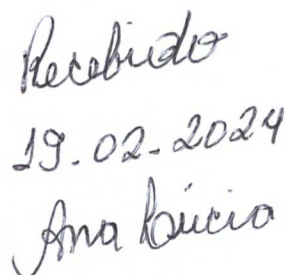 Recebido
19.02.2024
Ana Lúcia